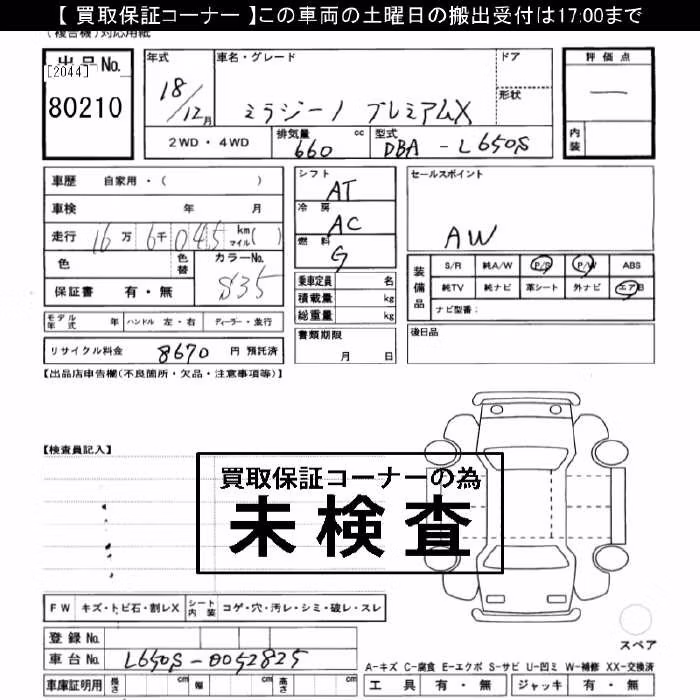 【 買取保証コーナー 】この車両の土曜日の搬出受付は17:00まで
(複合機)対応用紙
出品No.
[2044]
80210
年式
18/12月
車名・グレード
ミラジーノ プレミアムX
ドア
形状
評価点
―
内装
2WD・4WD
排気量 cc
660
型式
DBA-L650S
車歴 自家用・( )
車検 年 月
走行 16万6千045 km マイル( )
色
色替
カラーNo.
S35
保証書 有・無
モデル年式 年 ハンドル 左・右 ディーラー・並行
リサイクル料金 8670 円 預託済
シフト
AT
冷房
AC
燃料
G
乗車定員 名
積載量 kg
総重量 kg
書類期限
月 日
セールスポイント
AW
装備品
S/R 純A/W P/S P/W ABS
純TV 純ナビ 革シート 外ナビ エアB
ナビ型番:
後日品
【出品店申告欄(不良箇所・欠品・注意事項等)】
【検査員記入】
買取保証コーナーの為
未検査
FW キズ・トビ石・割レX シート内装 コゲ・穴・汚レ・シミ・破レ・スレ
登録No.
車台No. L650S-0052825
車庫証明用 長さ cm 幅 cm 高さ cm
スペア
A-キズ C-腐食 E-エクボ S-サビ U-凹ミ W-補修 XX-交換済
工具 有・無 ジャッキ 有・無